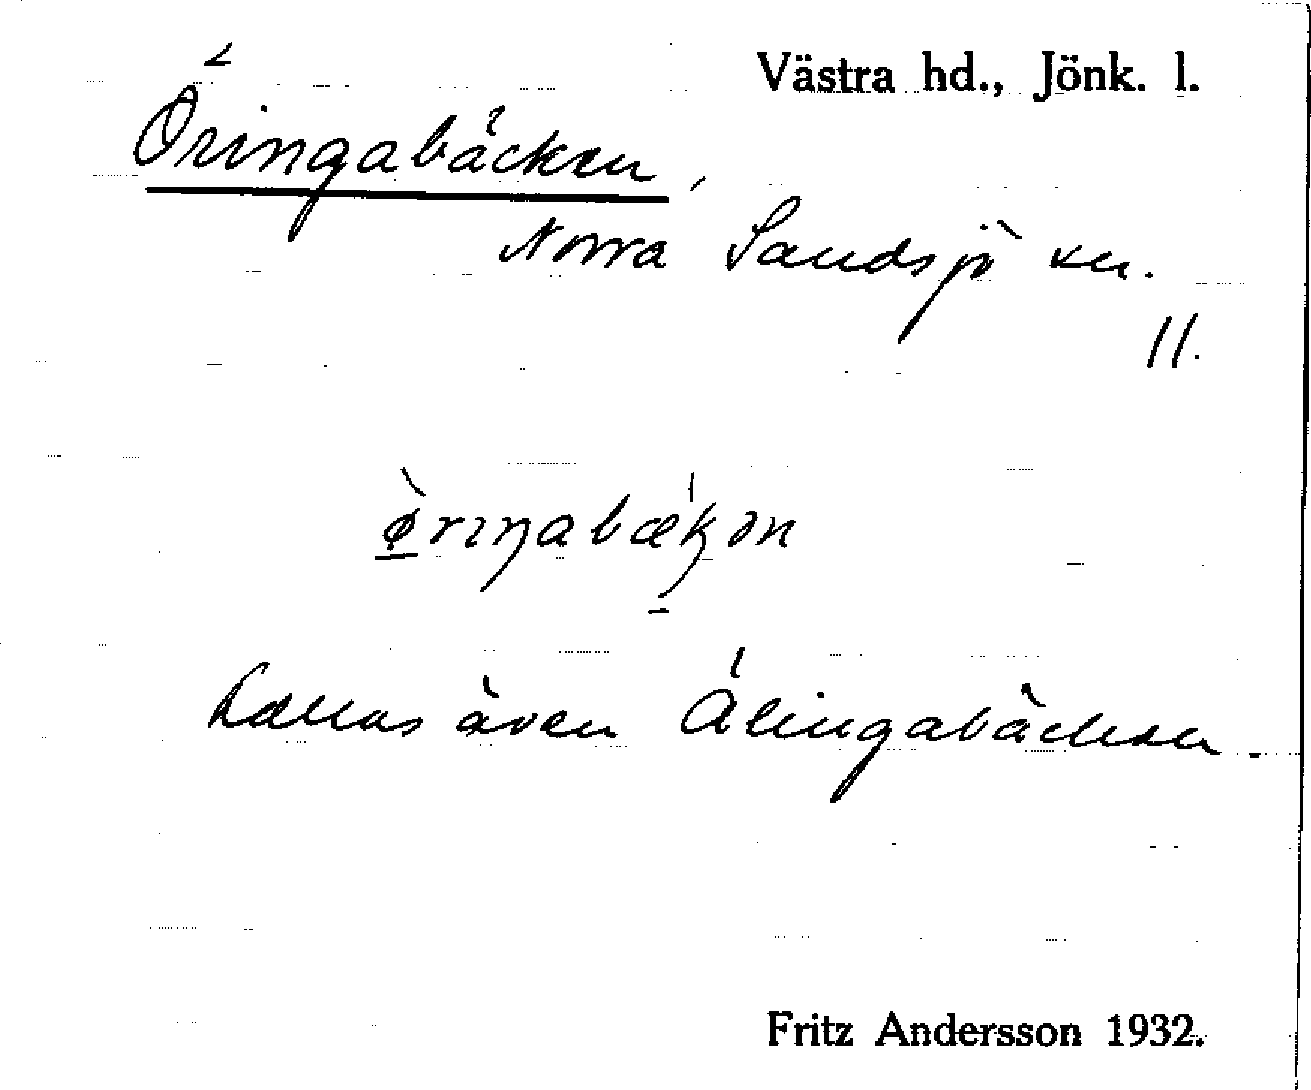 Västra hd., Jönk. l.
Öringabäcken,
Norra Sandsjö sn.
11.
ø̀riŋabækən
kallas även Älingabäcken.
Fritz Andersson 1932.